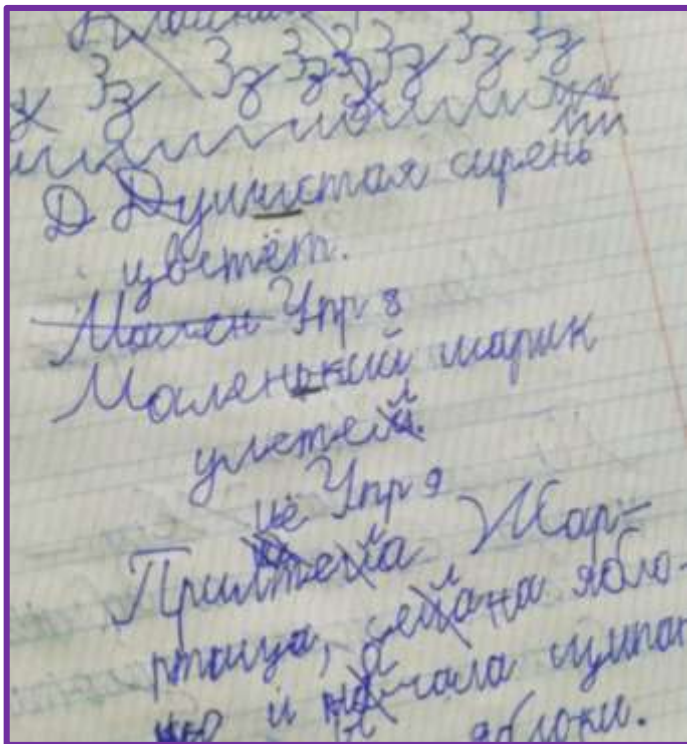 Зз Зз Зз Зз Зз Зз Зз
Д Душистая сирень
цветёт.
Мален Упр 8
Маленький шарик
улетел.
Упр 9
Жар-
птица, на ябло-
ню и начала щипать
яблоки.